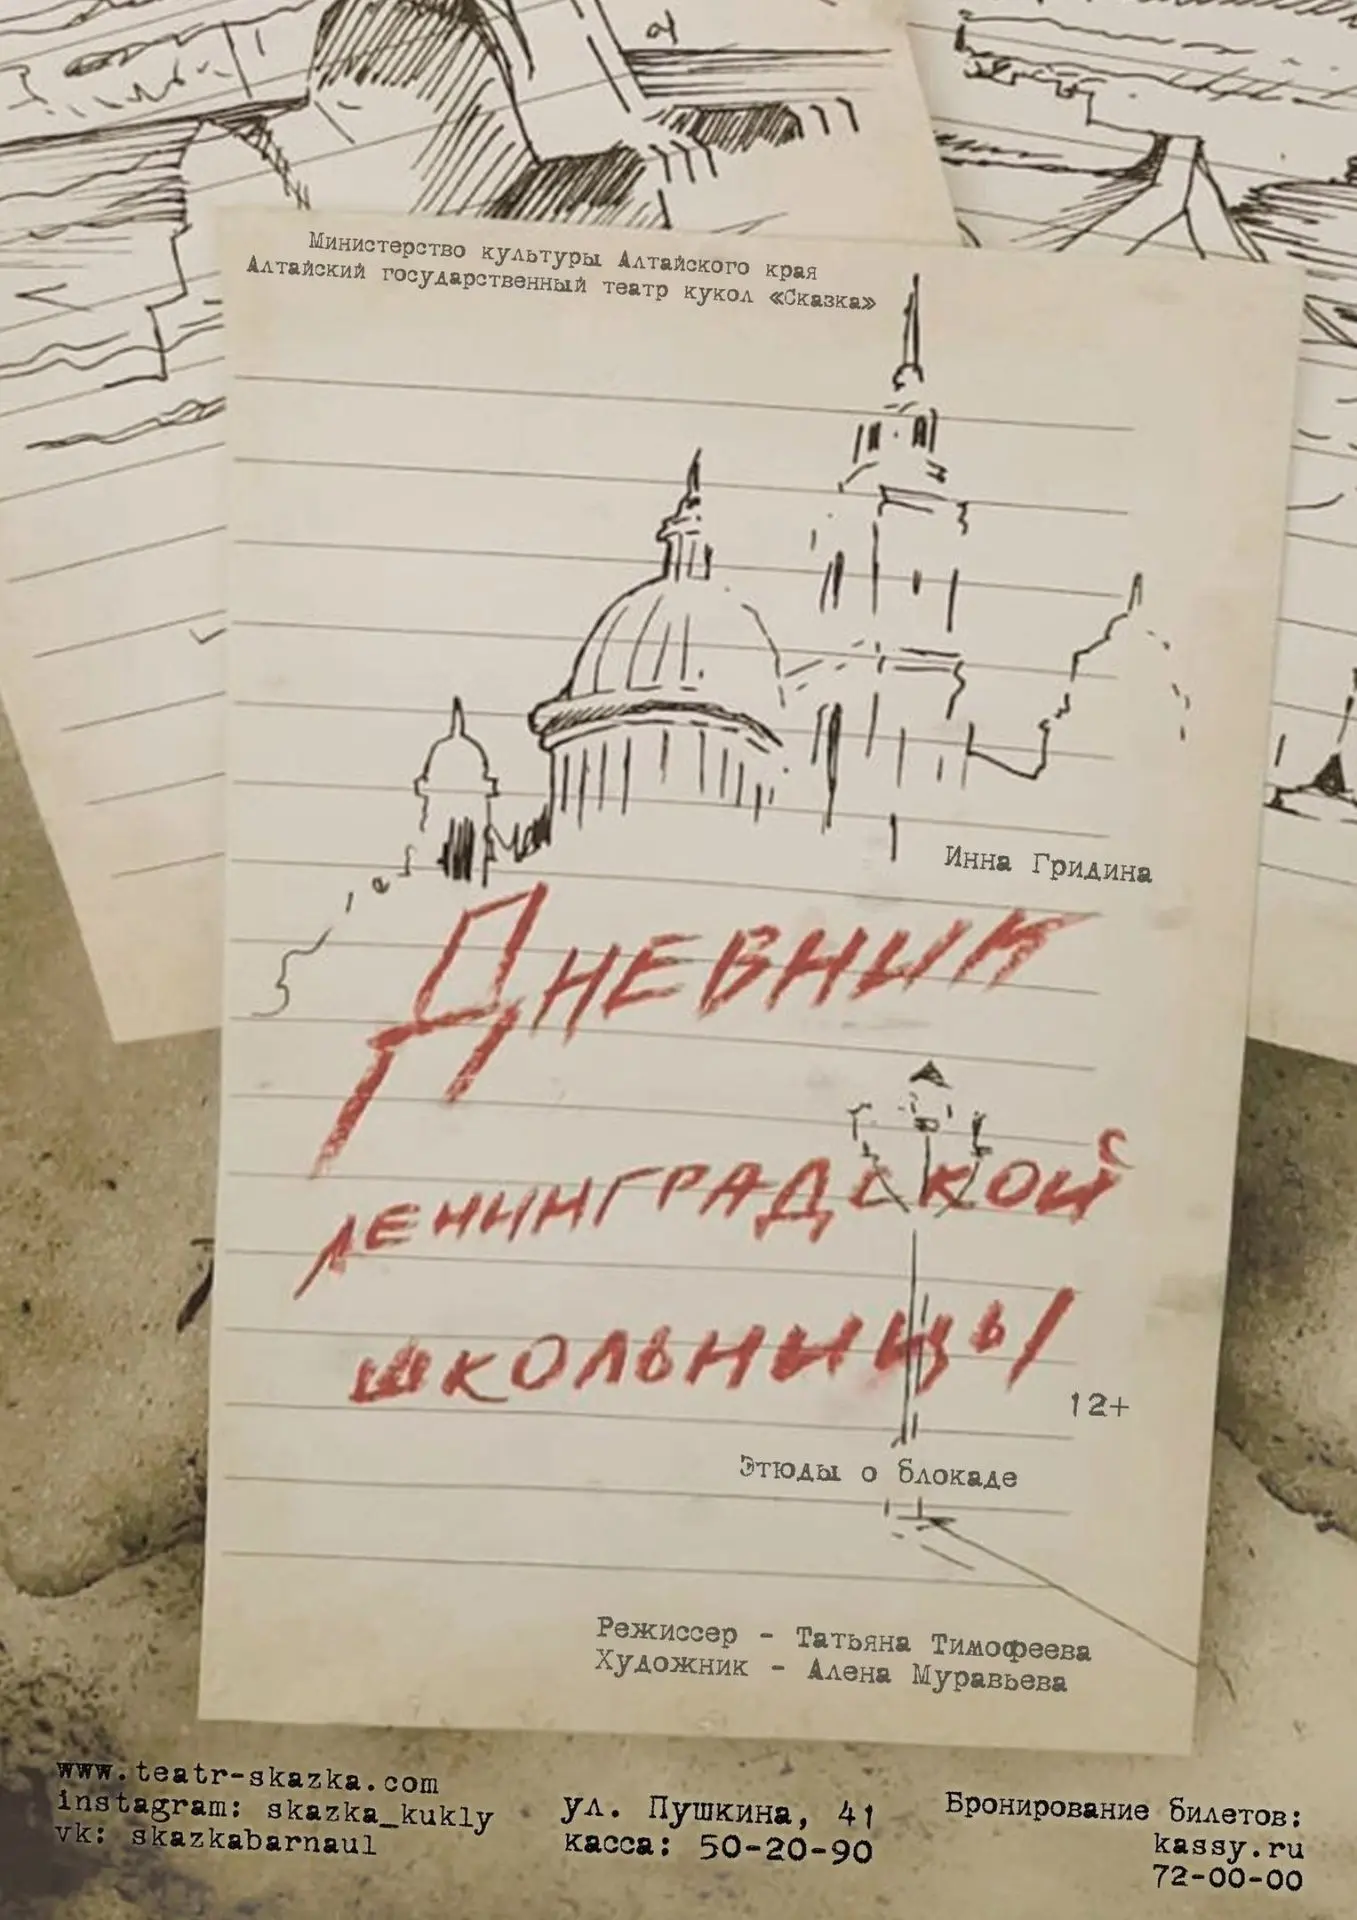 Министерство культуры Алтайского края
Алтайский государственный театр кукол «Сказка»
Инна Гридина
Дневник
ленинградской
школьницы
12+
Этюды о блокаде
Режиссер - Татьяна Тимофеева
Художник - Алена Муравьева
www.teatr-skazka.com
instagram: skazka_kukly
vk: skazkabarnaul
ул. Пушкина, 41
касса: 50-20-90
Бронирование билетов:
kassy.ru
72-00-00